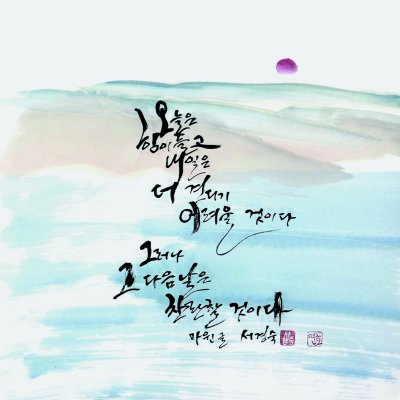 오늘은
힘이들고
내일은
더 견디기
어려울 것이다
그러나
그 다음날은
찬란할 것이다
마윈글 서경숙